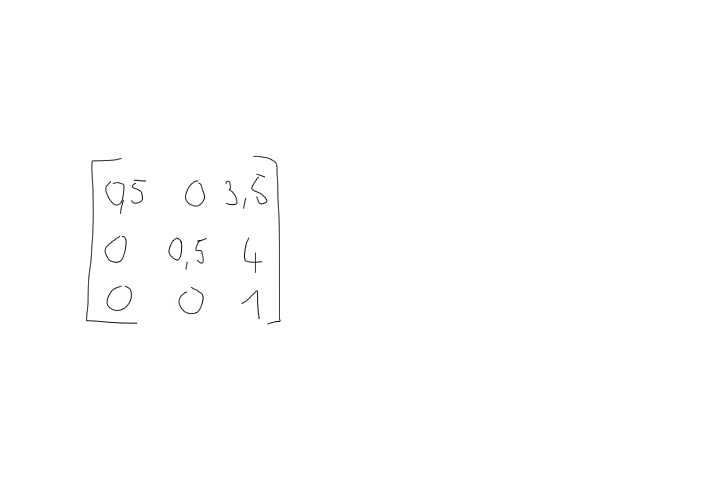 0,5 0 3,5
0 0,5 4
0 0 1